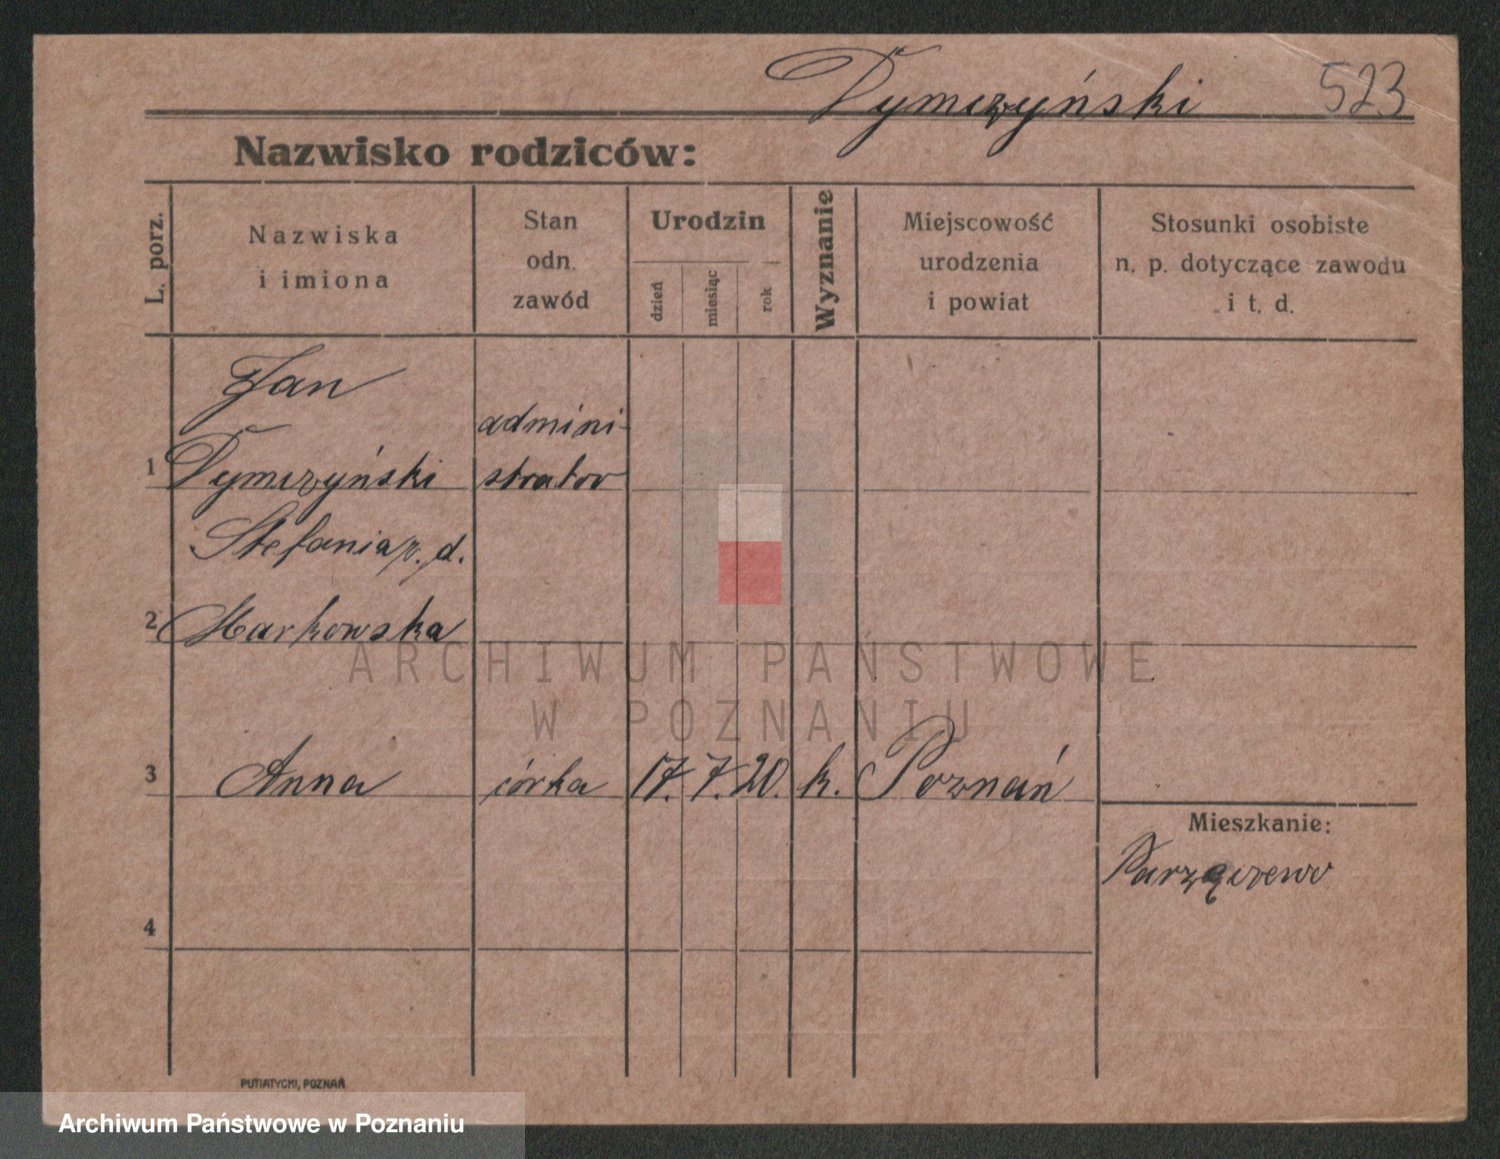 Dymczyński 523
Nazwisko rodziców:
L. porz.
Nazwiska
i imiona
Stan
odn.
zawód
Urodzin
dzień
miesiąc
rok
Wyznanie
Miejscowość
urodzenia
i powiat
Stosunki osobiste
n. p. dotyczące zawodu
i t. d.
Jan
admini-
1 Dymczyński strator
Stefania z. d.
2 Markowska
ARCHIWUM PAŃSTWOWE
W POZNANIU
3 Anna córka 17. 7. 20. k. Poznań
Mieszkanie:
Parzęczewo
4
PUTIATYCKI, POZNAŃ
Archiwum Państwowe w Poznaniu